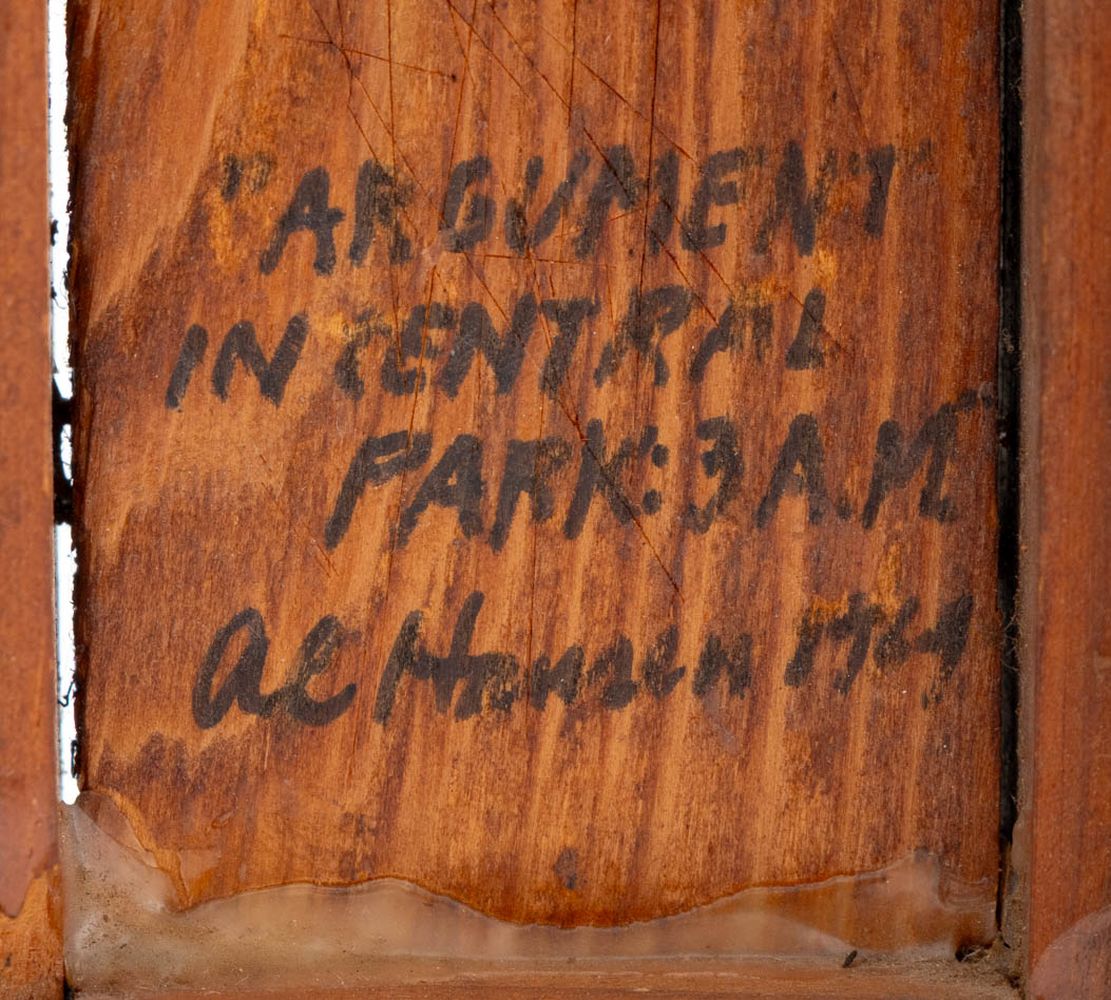 "ARGUMENT"
IN CENTRAL
PARK: 3 A.M.
al Hansen 1964